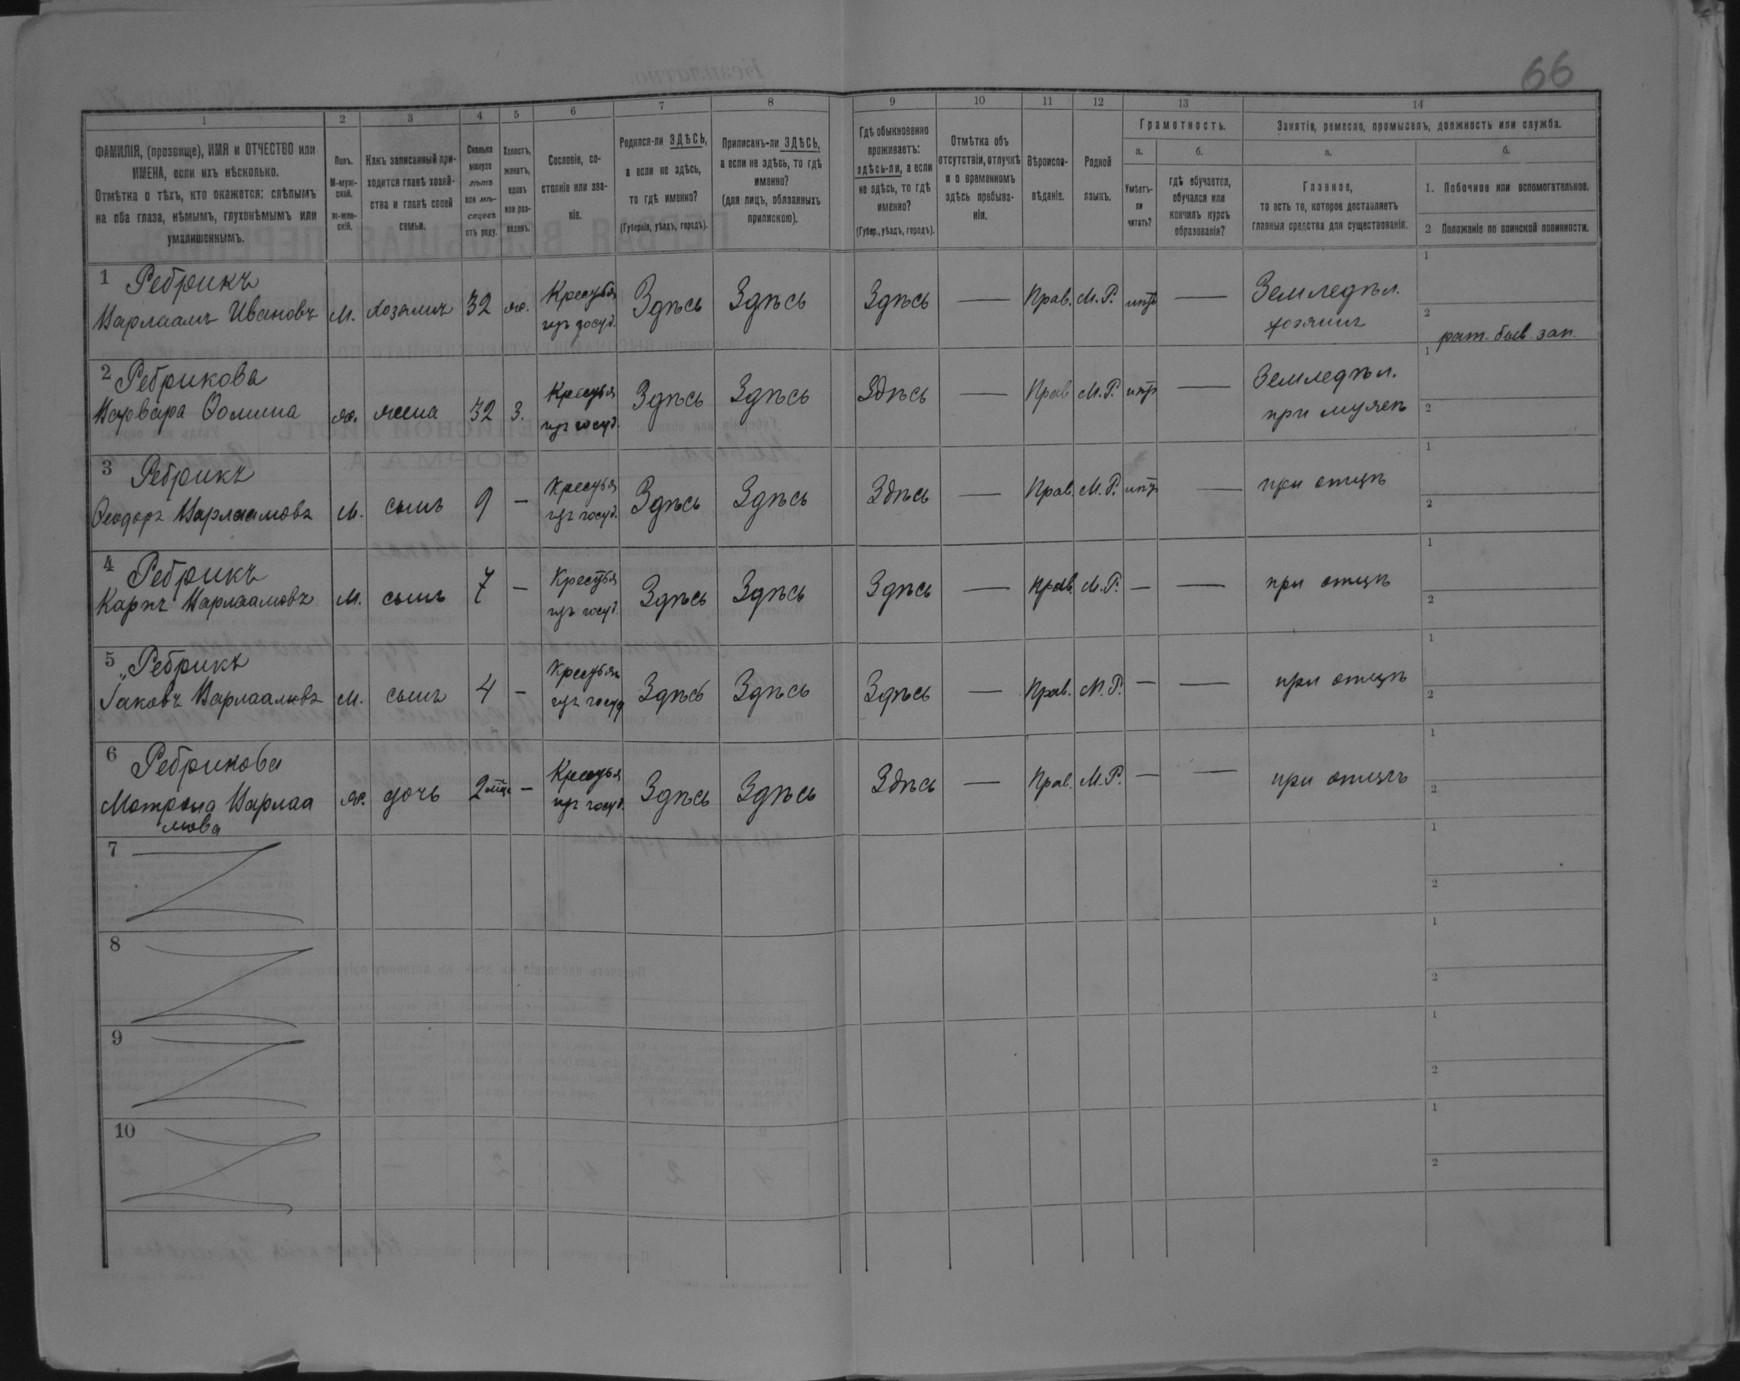 66
1 2 3 4 5 6 7 8 9 10 11 12 13 14
ФАМИЛІЯ, (прозвище), ИМЯ и ОТЧЕСТВО или
ИМЕНА, если ихъ нѣсколько.
Отмѣтка о тѣхъ, кто окажется: слѣпымъ
на оба глаза, нѣмымъ, глухонѣмымъ или
умалишеннымъ.
Полъ.
М-муж-
ской.
ж-жен-
скій.
Какъ записанный при-
ходится главѣ хозяй-
ства и главѣ своей
семьи.
Сколько
минуло
лѣтъ
или мѣ-
сяцевъ
отъ роду.
Холостъ,
женатъ,
вдовъ
или раз-
веденъ.
Сословіе, со-
стояніе или зва-
ніе.
Родился-ли ЗДѢСЬ,
а если не здѣсь,
то гдѣ именно?
(Губернія, уѣздъ, городъ).
Приписанъ-ли ЗДѢСЬ,
а если не здѣсь, то гдѣ
именно?
(для лицъ, обязанныхъ
припискою).
Гдѣ обыкновенно
проживаетъ:
здѣсь-ли, а если
не здѣсь, то гдѣ
именно?
(Губер., уѣздъ, городъ).
Отмѣтка объ
отсутствіи, отлучкѣ
и о временномъ
здѣсь пребыва-
ніи.
Вѣроиспо-
вѣданіе.
Родной
языкъ.
Грамотность.
а.
Умѣетъ-
ли
читать?
б.
гдѣ обучается,
обучался или
кончилъ курсъ
образованія?
Занятія, ремесло, промыселъ, должность или служба.
а.
Главное,
то есть то, которое доставляетъ
главныя средства для существованія.
б.
1. Побочное или вспомогательное.
2 Положеніе по воинской повинности.
1 Ребрикъ
Варлаамъ Ивановъ м. хозяинъ 32 ж. Крестья Здѣсь Здѣсь Здѣсь — Прав. М.Р. нѣтъ — Земледѣл.
изъ госуд. хозяинъ
1
2 рат. быв. зап.
2 Ребрикова
Варвара Фомина ж. жена 32 З. Крестья Здѣсь Здѣсь Здѣсь — Прав М.Р. нѣтъ — Земледѣл.
изъ госуд. при мужѣ
1
2
3 Ребрикъ
Ѳеодоръ Варлаамовъ м. сынъ 9 — Крестья Здѣсь Здѣсь Здѣсь — Прав. М.Р. нѣтъ — при отцѣ
изъ госуд.
1
2
4 Ребрикъ
Карпъ Варлаамовъ м. сынъ 7 — Крестья Здѣсь Здѣсь Здѣсь — Прав. М.Р. — — при отцѣ
изъ госуд.
1
2
5 Ребрикъ
Іаковъ Варлаамовъ м. сынъ 4 — Крестьян Здѣсь Здѣсь Здѣсь — Прав. М.Р. — — при отцѣ
изъ госуд
1
2
6 Ребрикова
Матрона Варлаа ж. дочь 2 мѣс — Крестья Здѣсь Здѣсь Здѣсь — Прав. М.Р. — — при отцѣ
мова изъ госуд.
1
2
7
1
2
8
1
2
9
1
2
10
1
2